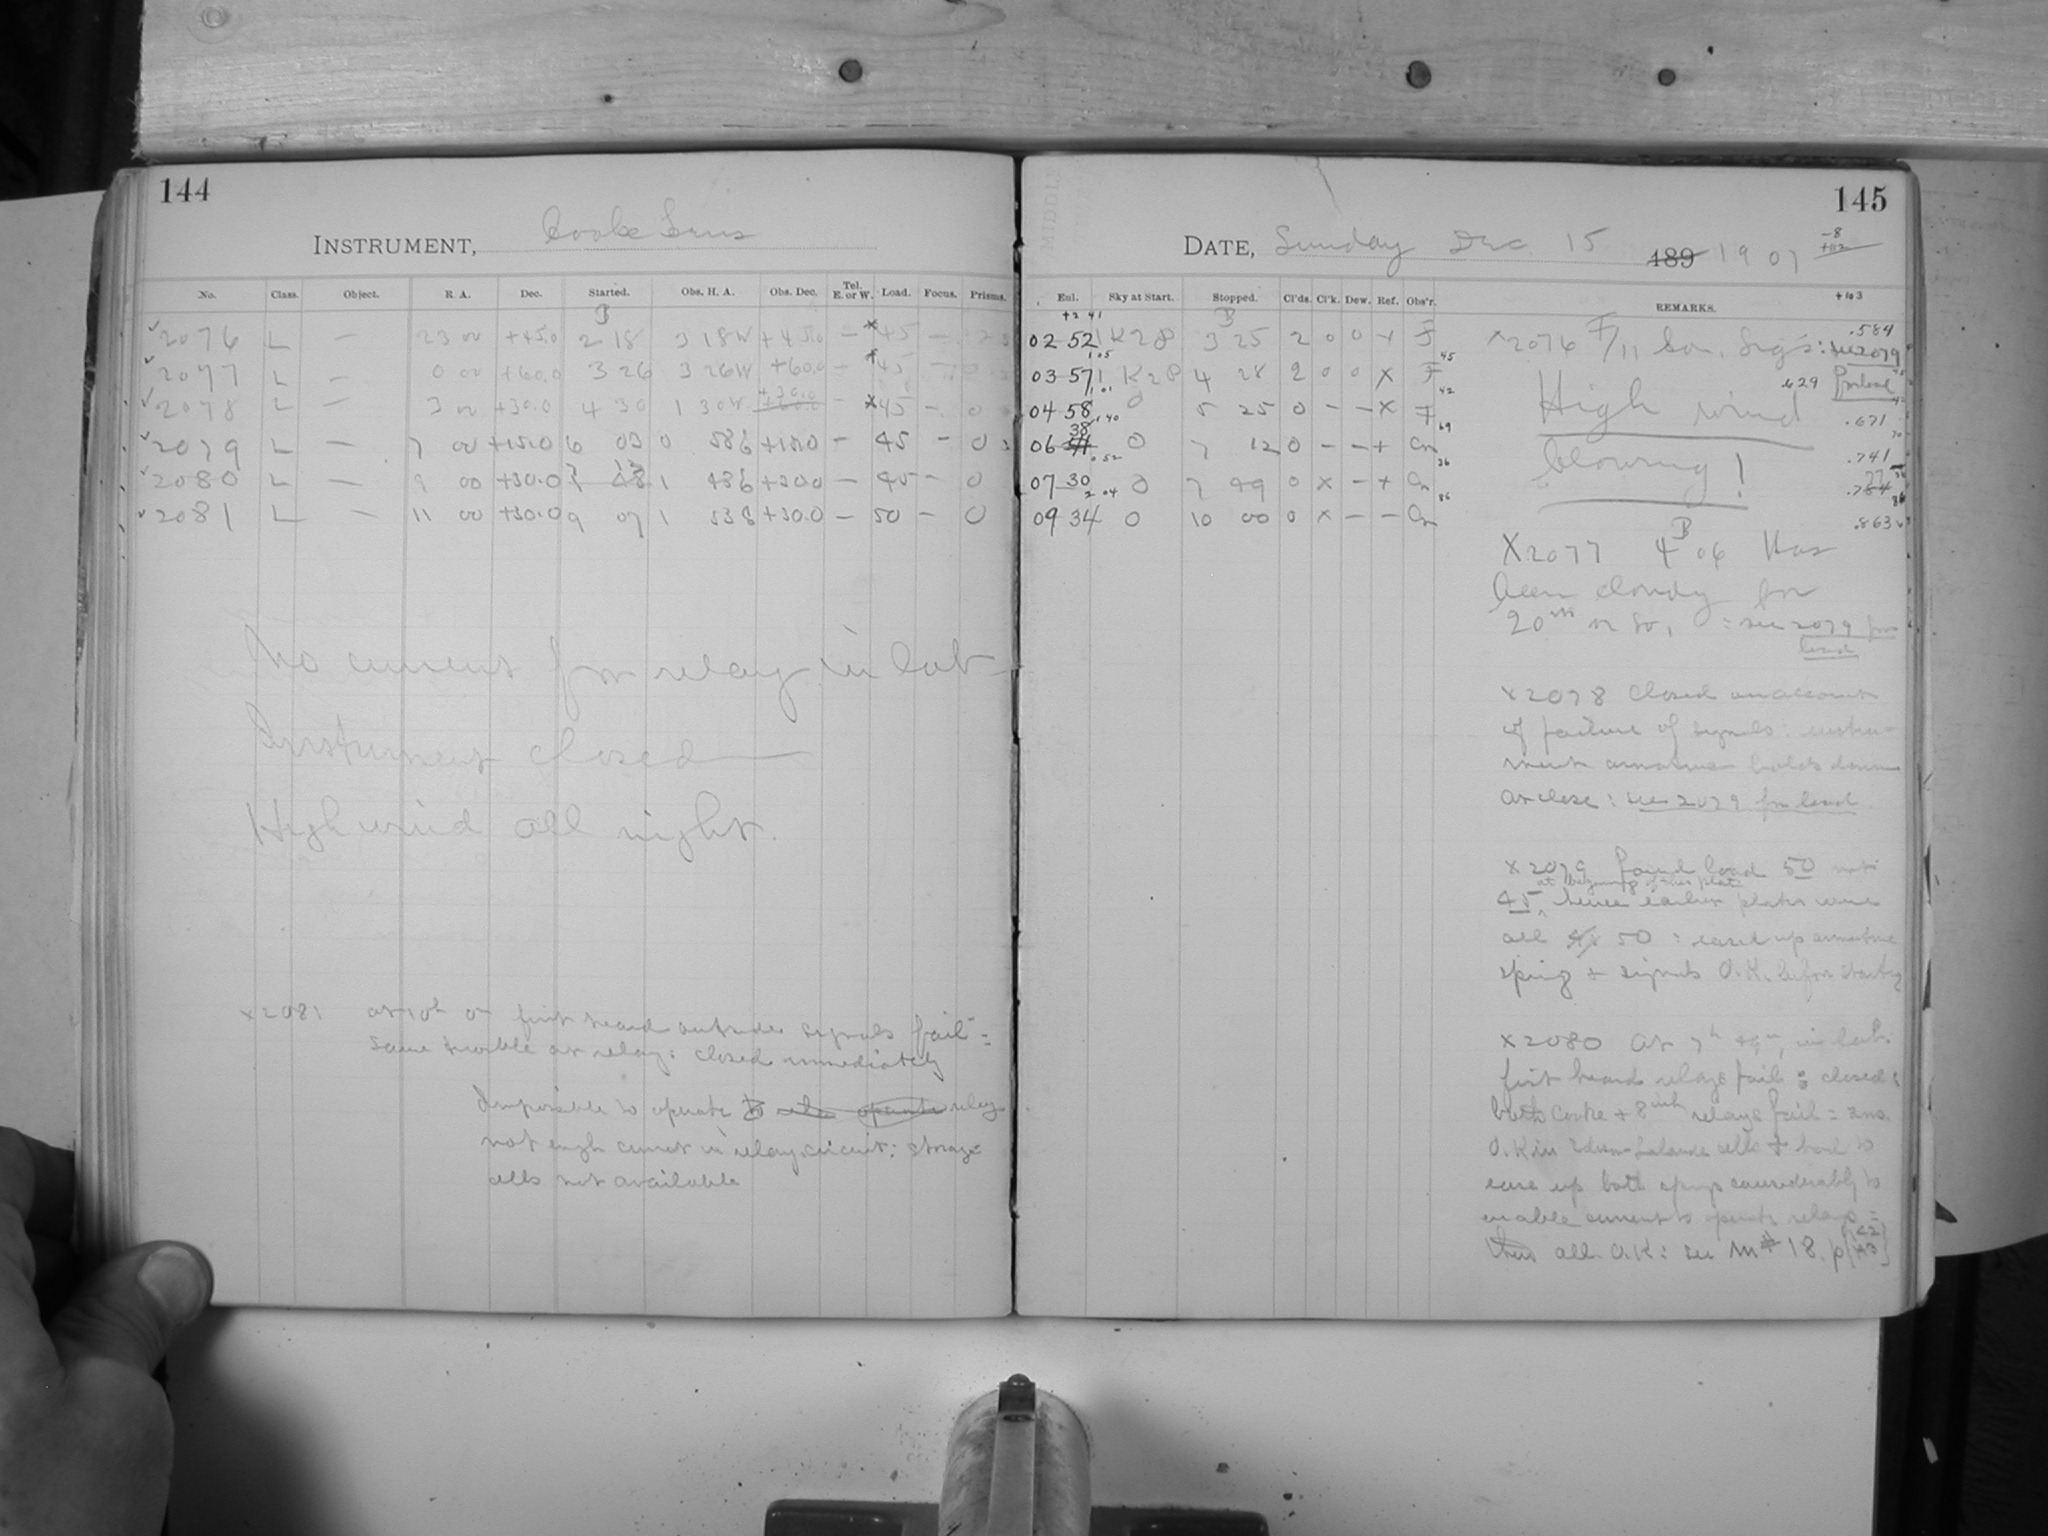 144
INSTRUMENT, Cooke Lens
No. Class. Object. R. A. Dec. Started. Obs. H. A. Obs. Dec. Tel. E. or W. Load. Focus. Prisms.
2076 L — 23 00 +45.0 2 18 3 18W +45.0 — x45 —
2077 L — 0 00 +60.0 3 26 3 26W +60.0 — x45 —
2078 L — 3 00 +30.0 4 30 1 30W +30.0 — x45 — 0
2079 L — 7 00 +15.0 6 03 0 58E +15.0 — 45 — 0
2080 L — 9 00 +30.0 1 48E +30.0 — 45 — 0
2081 L — 11 00 +30.0 9 07 1 53E +30.0 — 50 — 0
No current for relay in lab—
Instrument closed—
High wind all night.
x 2081 at 10h 0m first heard outside signals fail =
same trouble at relay: closed immediately
Impossible to operate relay
not enough current in relay circuit: storage
cells not available
145
DATE, Sunday Dec. 15 189 1907
-8
+103
Eul. Sky at Start. Stopped. Cl'ds. Cl'k. Dew. Ref. Obs'r. REMARKS.
+2 41
02 52 1K28 3 25 2 0 0 + F
03 57 1 K28 4 28 2 0 0 x F
04 58 0 5 25 0 — — x F
06 38 0 7 12 0 — — + Cn
07 30 0 7 49 0 x — + Cn
09 34 0 10 00 0 x — — Cn
x2076 F/11 Son. Sig's: see 2079 for load
.584
.629
High wind
.671
blowing!
.741
.784
.863
X2077 4 06 Has
been cloudy for
20m or so, : see 2079 for
load
x 2078 Closed on account
of failure of signals: instru-
ment armature holds down
at close: see 2079 for load
x 2079 Found load 50 not
at beginning of this plate
45, hence earlier plates were
all 50 : eased up armature
spring + signals O.K. before starting
x2080 At 7h 49m, in lab.
first heard relays fail: closed:
both Cooke + 8 inch relays fail =
O.K. in Edison-Lalande cells + had to
ease up both springs considerably to
enable current to operate relays =
then all O.K: see M# 18. p